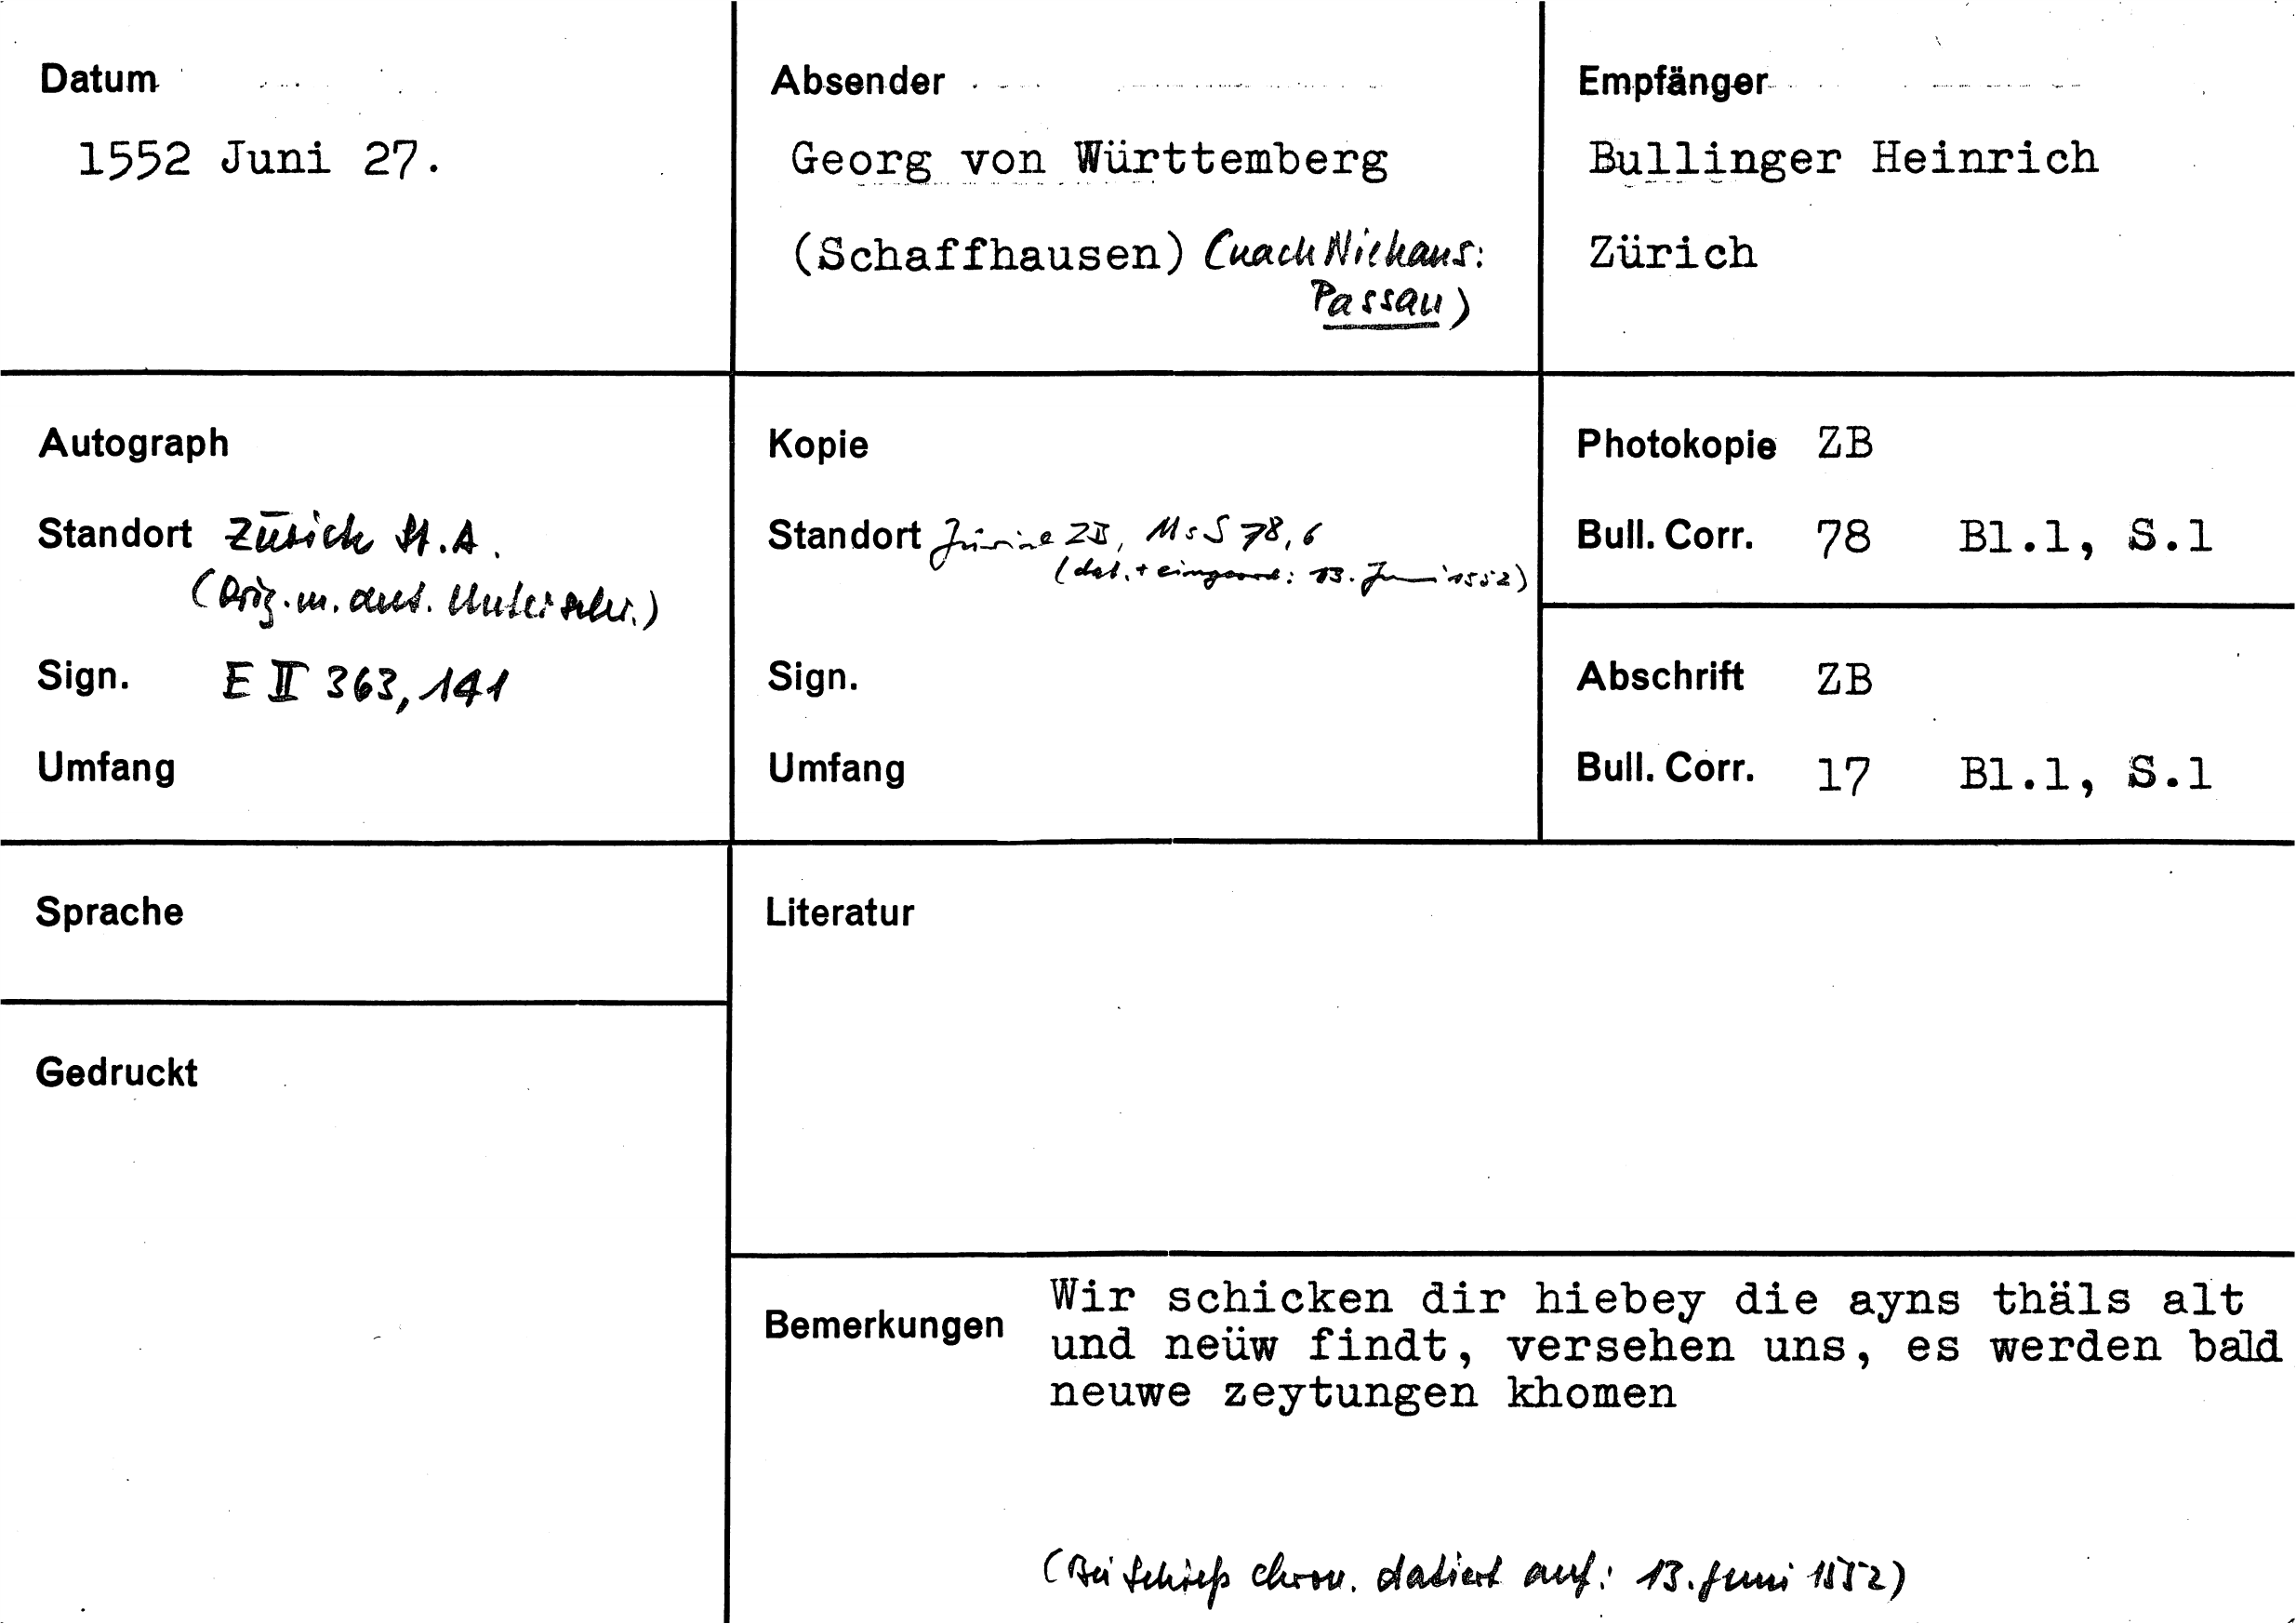 Datum
1552 Juni 27.
Absender
Georg von Württemberg
(Schaffhausen) (nach Niehans:
Passau)
Empfänger
Bullinger Heinrich
Zürich
Autograph
Standort Zürich St.A.
(Orig. m. aut. Unterschr.)
Sign. E II 363, 141
Umfang
Kopie
Standort ZB, Ms S 78, 6
(dat. + : 13. Juni 1552)
Sign.
Umfang
Photokopie ZB
Bull. Corr. 78 Bl.1, S.1
Abschrift ZB
Bull. Corr. 17 Bl.1, S.1
Sprache
Literatur
Gedruckt
Bemerkungen Wir schicken dir hiebey die ayns thäls alt
und neüw findt, versehen uns, es werden bald
neuwe zeytungen khomen
(Bei Schieß chron. datiert auf: 13. Juni 1552)